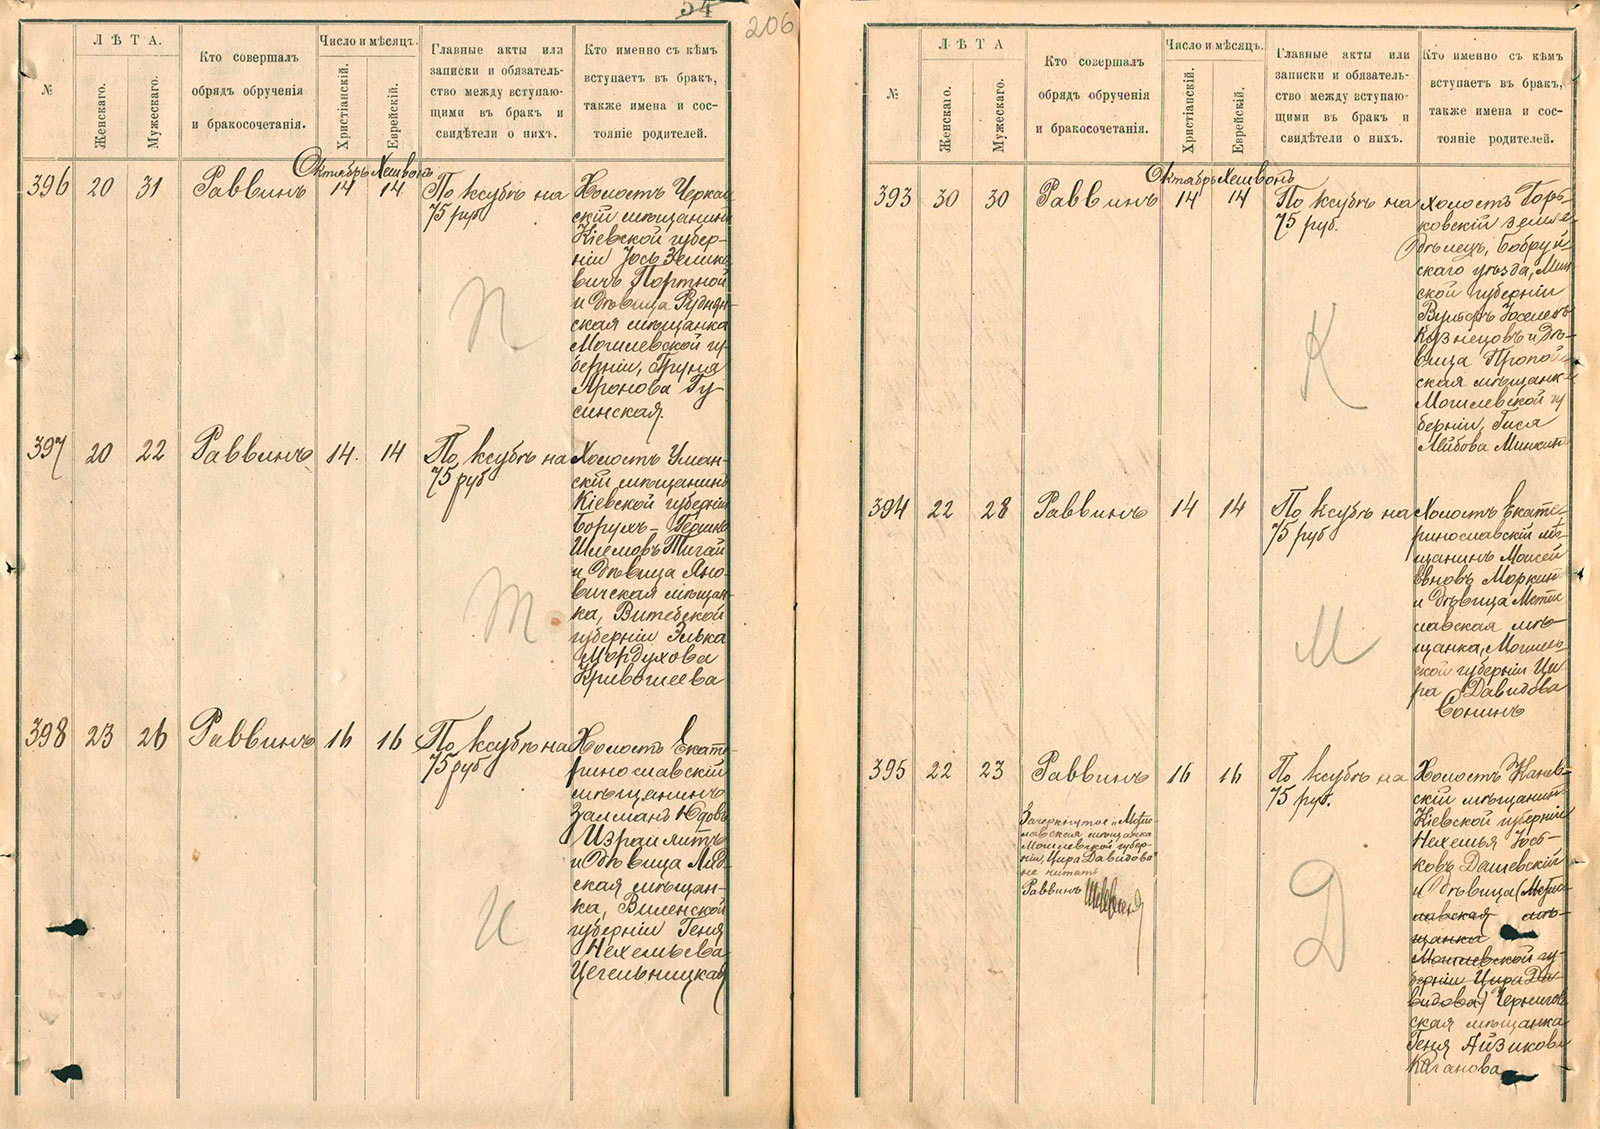 54
206
ЛѢТА.
№
Женскаго.
Мужескаго.
Кто совершалъ
обрядъ обрученія
и бракосочетанія.
Число и мѣсяцъ.
Христіанскій.
Еврейскій.
Главные акты или
записки и обязатель-
ство между вступаю-
щими въ бракъ и
свидѣтели о нихъ.
Кто именно съ кѣмъ
вступаетъ въ бракъ,
также имена и сос-
тояніе родителей.
Октябрь Хешвонъ
396 20 31 Раввинъ 14 14
По ксубѣ на
75 руб
Холостъ Черкас
скій мѣщанинъ
Кіевской губер-
ніи Іось Зелико
вичъ Портной
и дѣвица Руднян-
ская мѣщанка
Могилевской гу-
берніи, Груня
Аронова Гу-
синская.
П
397 20 22 Раввинъ 14. 14
По ксубѣ на
75 руб
Холостъ Уман-
скій мѣщанинъ
Кіевской губерніи
Борухъ-Гершнъ
Шлемовъ Тигай
и дѣвица Яно-
вичская мѣщан-
ка, Витебской
губерніи Элька
Мордухова
Кривошеева
Т
398 23 26 Раввинъ 16 16
По ксубѣ на
75 руб
Холостъ Екате-
ринославскій
мѣщанинъ
Залманъ Юдовъ
Израилитъ
и дѣвица Лид-
ская мѣщан-
ка, Виленской
губерніи Геня
Нехемьева
Цегельницкая
И
ЛѢТА
№
Женскаго.
Мужескаго.
Кто совершалъ
обрядъ обрученія
и бракосочетанія.
Число и мѣсяцъ.
Христіанскій.
Еврейскій.
Главные акты или
записки и обязатель-
ство между вступаю-
щими въ бракъ и
свидѣтели о нихъ.
Кто именно съ кѣмъ
вступаетъ въ бракъ,
также имена и сос-
тояніе родителей.
Октябрь Хешвонъ
393 30 30 Раввинъ 14 14
По ксубѣ на
75 руб.
холостъ Горь-
ковскій земле-
дѣлецъ, Бобруй
скаго уѣзда, Мин
ской губерніи
Вульфъ Іоселевъ
Кузнецовъ и дѣ-
вица Пропой
ская мѣщанк-
Могилевской гу
берніи, Гися
Лейбова Минкин
К
394 22 28 Раввинъ 14 14
По ксубѣ на
75 руб
Холостъ Екате-
ринославскій мѣ-
щанинъ Моисей
Вновъ Моркин
и дѣвица Мсти
славская мѣ-
щанка, Могилев-
ской губерніи Ци
ра Давидова
Сонинъ
М
395 22 23 Раввинъ 16 16
По ксубѣ на
75 руб.
Зачеркнутое „Мсти-
славская мѣщанка
Могилевской губер-
ніи, Цира Давидова"
не читать
Раввинъ
Холостъ Канев-
скій мѣщанинъ
Кіевской губерніи
Нехемья Іось-
ковъ Дашевскій
и дѣвица (Мсти-
славская мѣ-
щанка
Могилевской гу-
берніи Цира Да-
видова) Чернигов
ская мѣщанка
Геня Айзикова
Каганова
Д